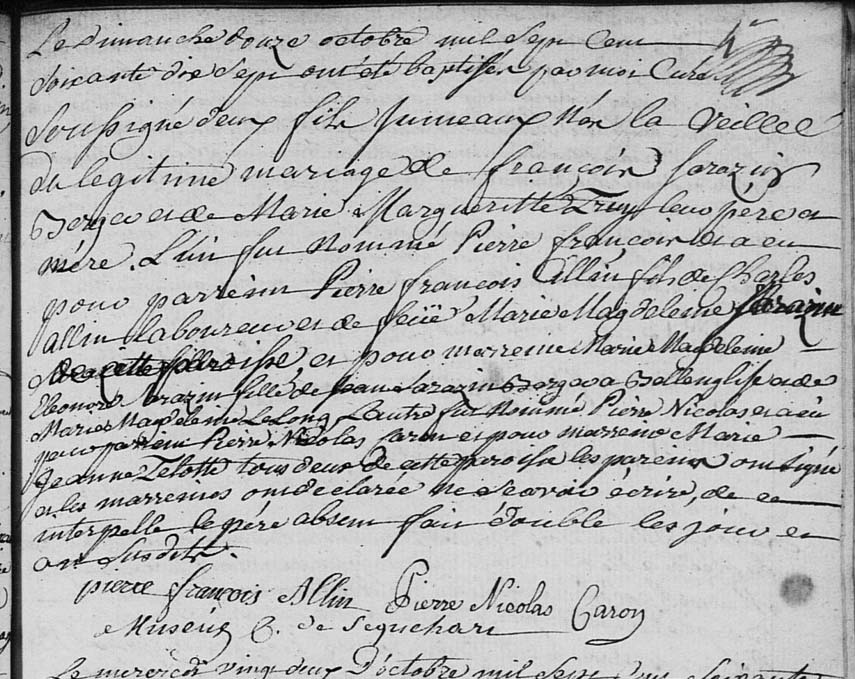 Le Dimanche douze octobre mil Sept Cent
Soixante dix Sept ont été baptisés par moi Curé
Soussigné deux fils jumeaux Nés la veille
du legitime mariage de françois Sarazin
Berger et de Marie Margueritte leur père et
mére. L'un fut Nommé Pierre françois et a eu
pour parrein Pierre francois Allin fils de Charles
allin laboureur et de feüe Marie Magdeleine Sarazin
de cette paroisse, et pour marreine Marie Magdeleine
Eleonore Sarazin fille de Jean Sarazin Berger a Bellenglise et de
Marie Magdeleine Le Long, L'autre fut Nommé Pierre Nicolas et a eu
pour parrein Pierre Nicolas Caron et pour marreine Marie
Jeanne tous deux de cette paroisse les pareins ont signé
et les marreines ont declarée ne sçavoir écrire, de ce
interpellé le pére absent fait double les jour et
an Susdits.
pierre françois Allin Pierre Nicolas Caron
C. de Sequehart
Le mercredi vingt deux D'octobre mil Sept Cent Soixante